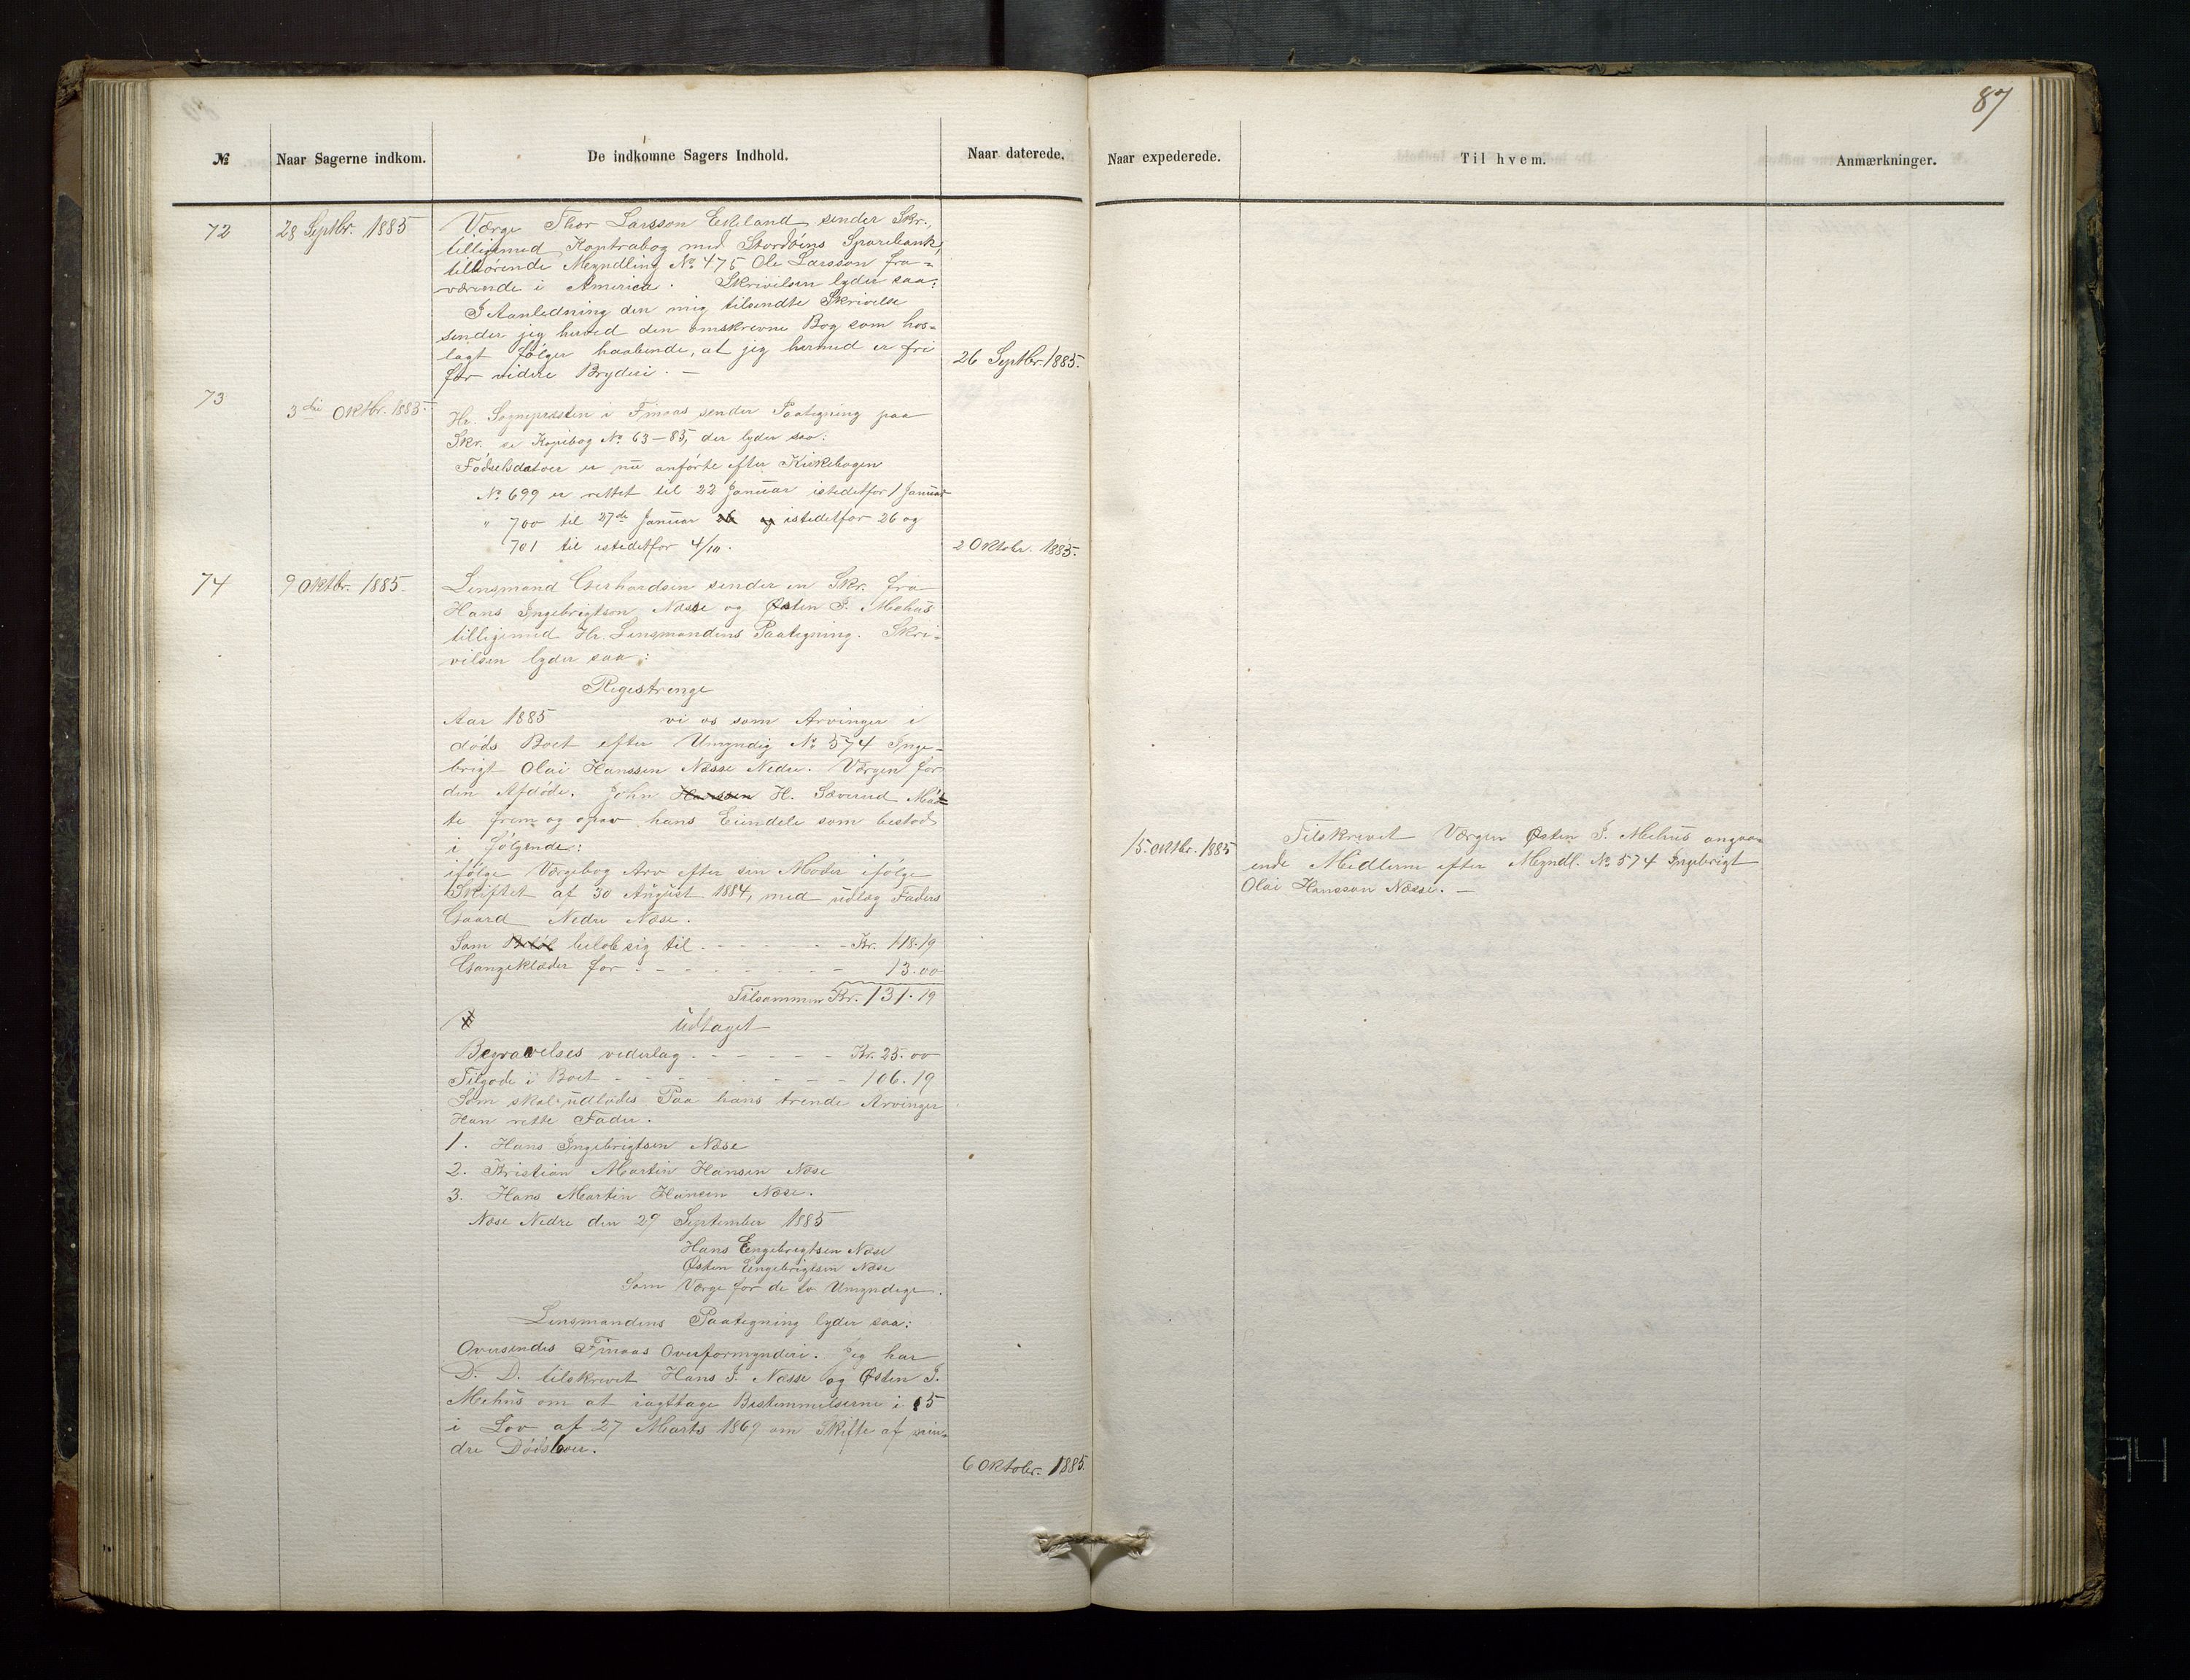 87
№
Naar Sagerne indkom.
De indkomne Sagers Indhold.
Naar daterede.
Naar expederede.
Til hvem.
Anmærkninger.
72
28 Septbr. 1885
Værge Thor Larsson Eskeland sender Skr.,
tilligemed Kontrabog med Stordøens Sparebank,
tilhørende Myndling No. 475 Ole Larsson fra-
værende i America. Skrivelsen lyder saa:
I Aanledning den mig tilsendte Skrivelse
sender jeg herved den omskrevne Bog som hos-
lagt følger haabende, at jeg hermed er fri
for videre Bryderi. —
26 Septbr. 1885.
73
3die Oktbr. 1885.
Hr. Sognepræsten i Finaas sender Paategning paa
Skr. se Kopibog No. 63-85, der lyder saa:
Fødselsdatoer er nu anførte efter Kirkebogen
No. 699 er rettet til 22 Januar istedetfor 1 Januar
" 700 til 27de Januar 26 og istedetfor 26 og
701 til istedetfor 4/10.
2 Oktobr. 1885.
74
9 Oktbr. 1885.
Lensmand Gerhardsen sender en Skr. fra
Hans Ingebrigtson Næsse og Østen I. Mehus
tilligemed Hr. Lensmandens Paategning. Skri-
velsen lyder saa:
Regestrenge
Aar 1885 vi os som Arvinger i
døds Boet efter Umyndig No. 574 Inge-
brigt Olai Hanssen Næsse Nedre. Værgen for
den Afdøde. John Hanssen H. Sæverud Mød-
te frem og opgav hans Eiendele som bestod
i følgende:
ifølge Værgebog Arv efter sin Moder ifølge
Skiftet af 30 August 1884, med udlæg Faders
Gaard Nedre Næse.
Som beløb sig til - - - - - - Kr. 118.19
Gangeklæder for - - - - - - - 13.00
Tilsammen Kr. 131.19
udtaget
Begravelses vederlag - - - - - - Kr. 25.00
Tilgode i Boet - - - - - - - - 106.19
Som skal udlodes Paa hans trende Arvinger
Han rette Fader.
1. Hans Ingebrigtsen Næse
2. Kristian Martin Hansen Næse
3. Hans Martin Hansen Næse.
Næse Nedre den 29 September 1885
Hans Engebrigtsen Næse
Østen Engebrigtsen Næse
Som Værge for de to Umyndige.
Lensmandens Paategning lyder saa:
Oversendes Finaas Overformynderi. Jeg har
D. D. tilskrevet Hans I. Næsse og Østen I.
Mehus om at iagttage Bestemmelserne i § 5
i Lov af 27 Marts 1869 om Skifte af min-
dre Dødsboer.
6 Oktober. 1885.
15. Oktbr. 1885
Tilskrevet Værgen Østen I. Mehus angaa-
ende Midlerne efter Myndl. No. 574 Ingebrigt
Olai Hansson Næsse. —